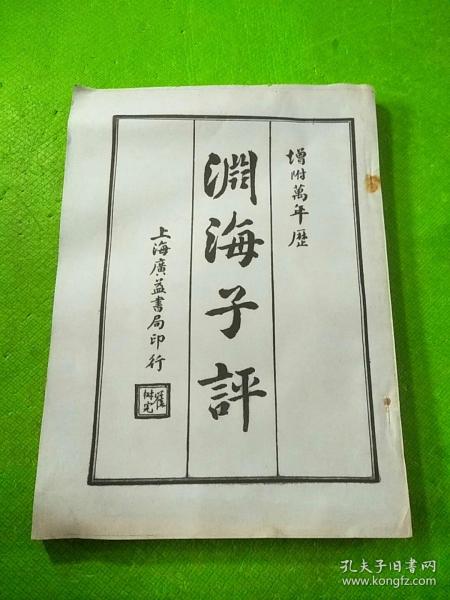 增附萬年歷
淵海子評
上海廣益書局印行
孔夫子旧书网
www.kongfz.com